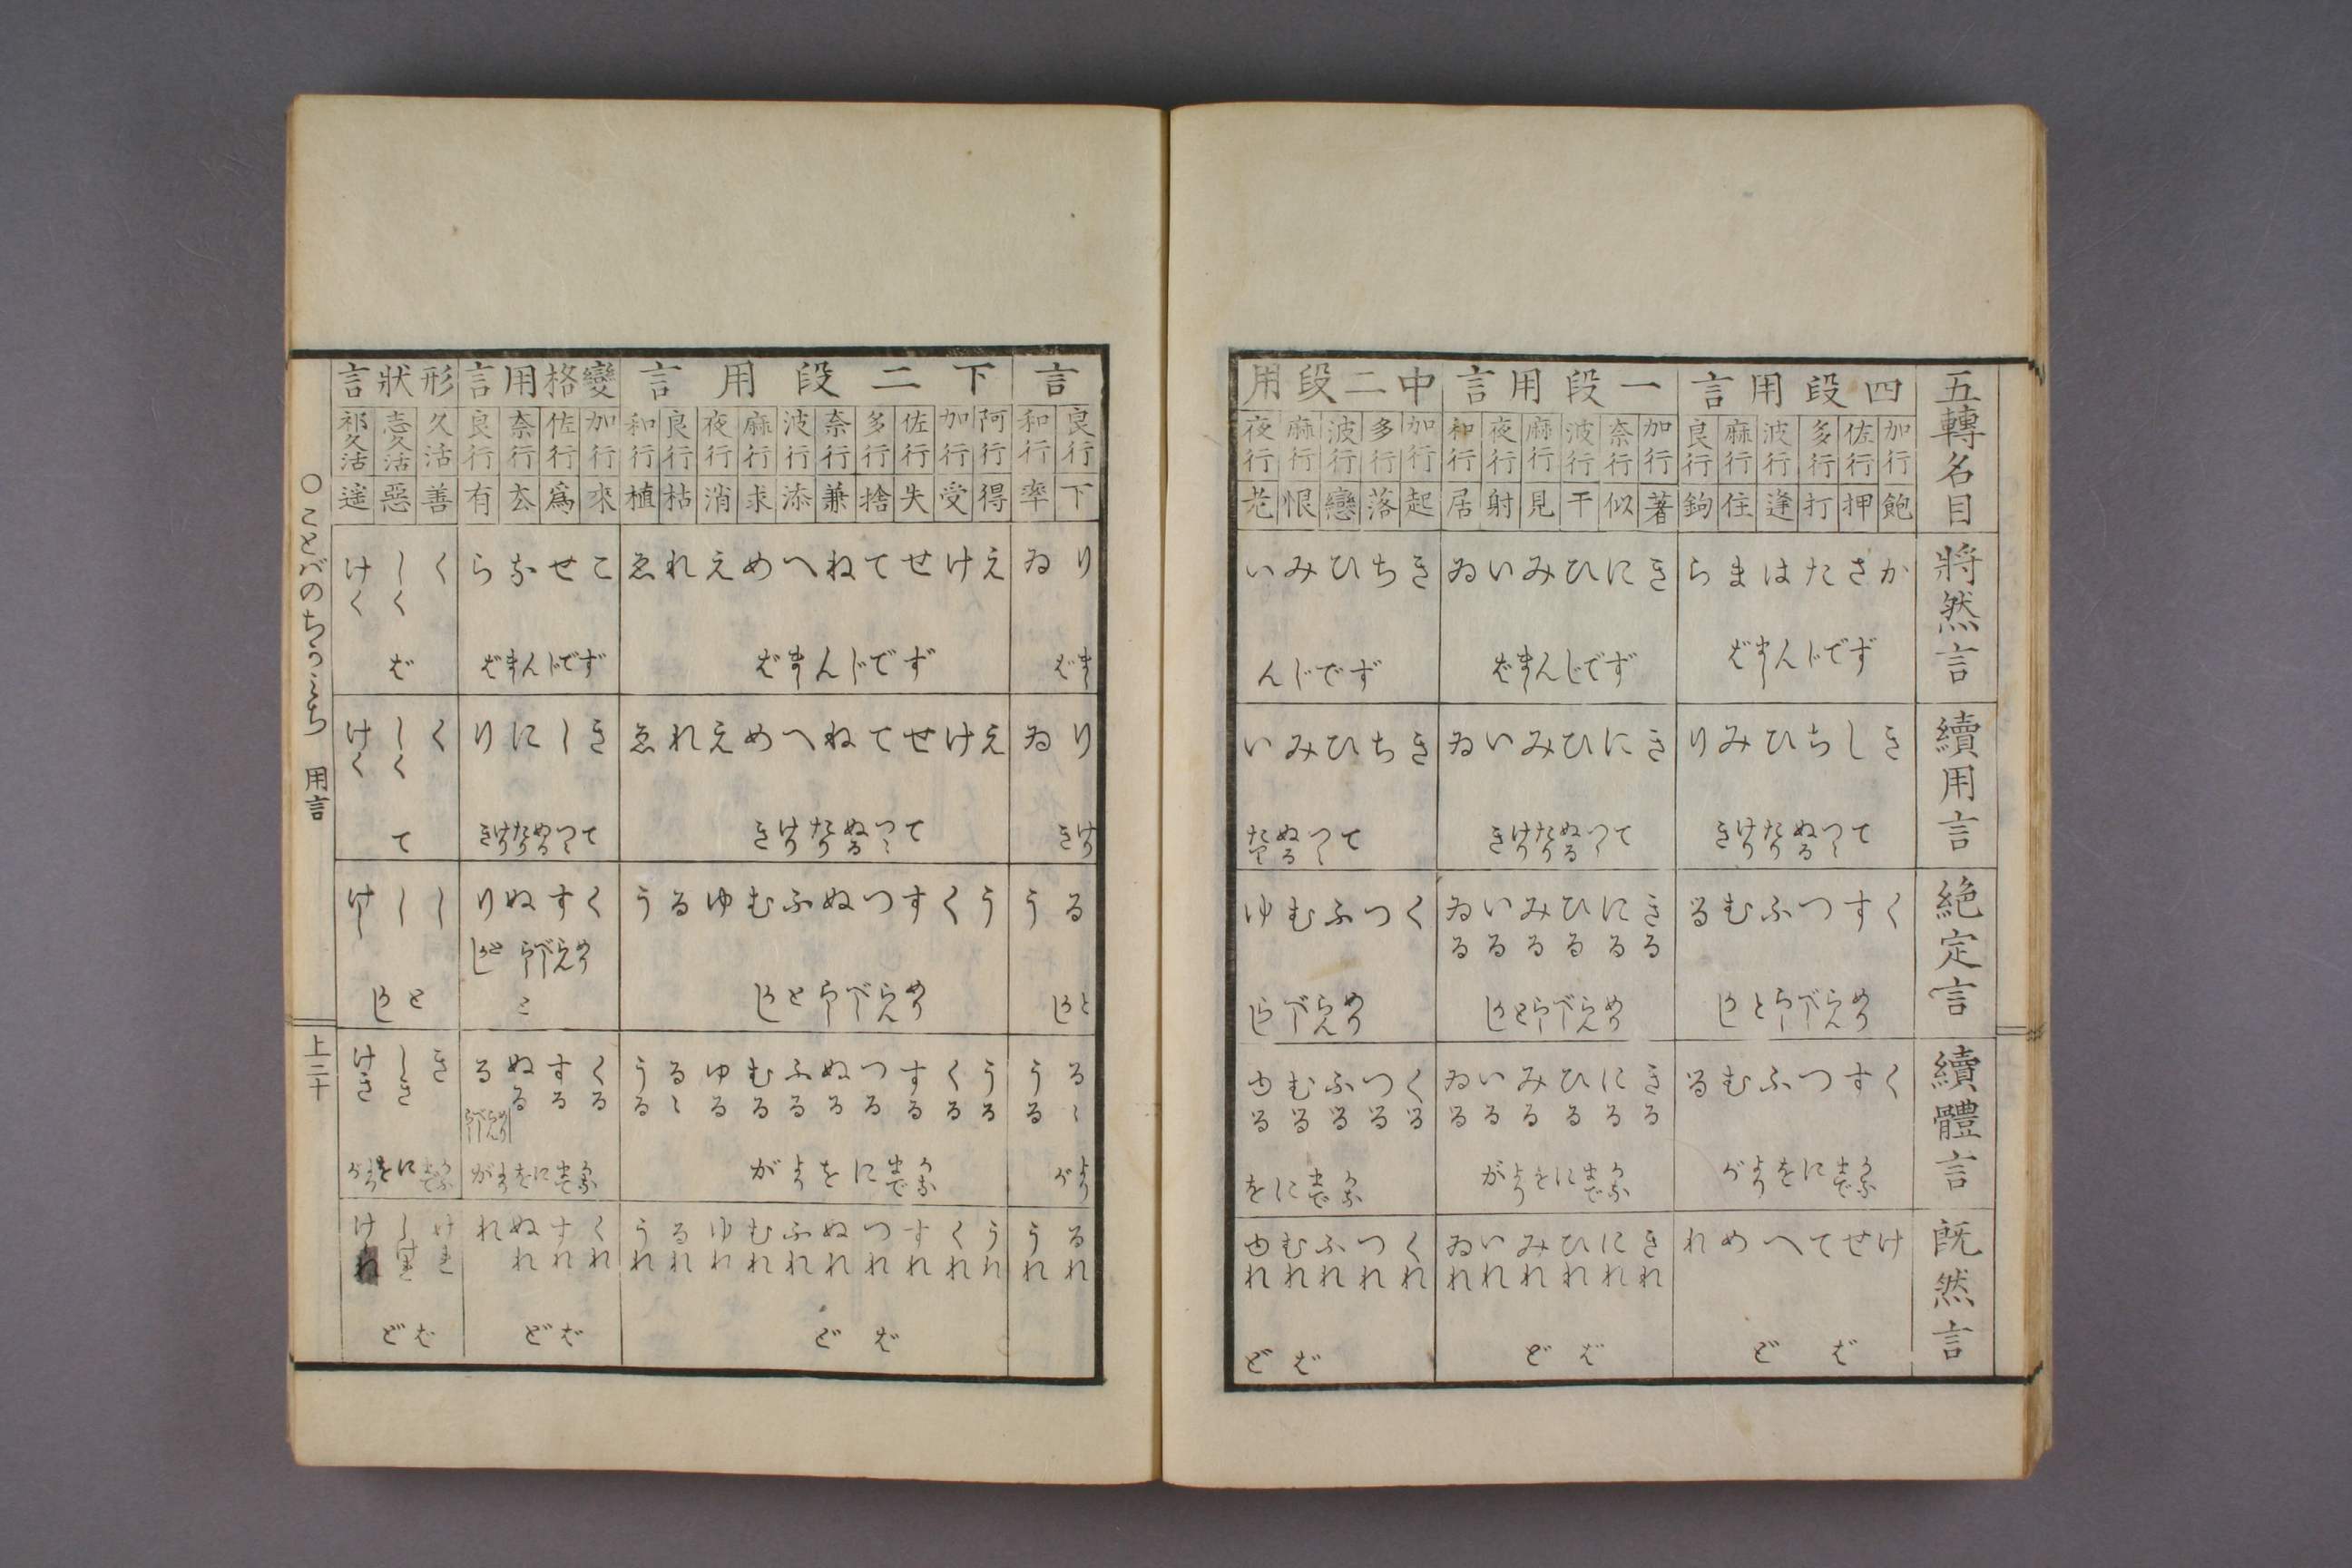 五轉名目
將然言
續用言
絶定言
續體言
既然言
四段用言
加行 佐行 多行 波行 麻行 良行
飽 押 打 逢 住 鉤
かさたはまら
ずでじんまし
ば
きしちひみり
てつつぬるたりけりき
くすつふむる
めりらんべしらしと
くすつふむる
までにをよりが
けせてへめれ
ばど
一段用言
加行 奈行 波行 麻行 夜行 和行
著 似 干 見 射 居
きにひみいゐ
ずでじんましば
きにひみいゐ
てつつぬるたりけりき
きる にる ひる みる いる ゐる
めりらんべしらしと
きる にる ひる みる いる ゐる
までにをよりが
きれ にれ ひれ みれ いれ ゐれ
ばど
中二段用
加行 多行 波行 麻行 夜行
起 落 戀 恨 老
きちひみい
ずでじん
きちひみい
てつつぬるたり
くつふむゆ
めりらんべしらし
くる つる ふる むる ゆる
までにを
くれ つれ ふれ むれ ゆれ
ばど
言
良行 和行
下 率
りゐ
ましば
りゐ
けりき
るう
と
るゝ うる
よりが
るれ うれ
下二段用言
阿行 加行 佐行 多行 奈行 波行 麻行 夜行 良行 和行
得 受 失 捨 兼 添 求 消 枯 植
えけせてねへめえれゑ
ずでじんましば
えけせてねへめえれゑ
てつつぬるたりけりき
うくすつぬふむゆるう
めりらんべしらしと
うる くる する つる ぬる ふる むる ゆる るゝ うる
までにをよりが
うれ くれ すれ つれ ぬれ ふれ むれ ゆれ るれ うれ
ばど
變格用言
加行 佐行 奈行 良行
來 爲 去 有
こせなら
ずでじんましば
きしにり
てつつぬるたりけりき
くすぬり
めりらんべしらしと
くる する ぬる る
めりらんべしらし
までにをよりが
くれ すれ ぬれ れ
ばど
形狀言
久活 志久活 祁久活
善 惡 遥
く しく けく
ば
く しく けく
て
し し けし
と
き しき けき
までにをよりが
けれ しけれ けれ
ばど
○ことばのちかみち 用言
上二十